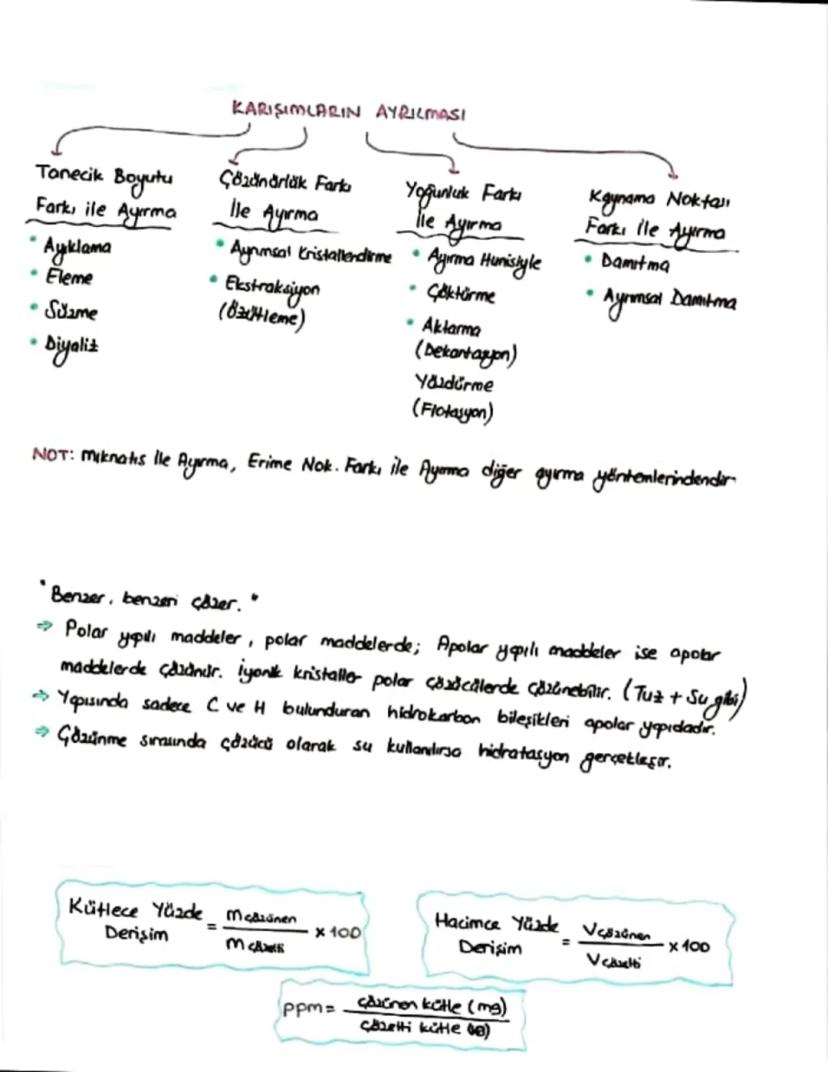 KARIŞIMLARIN AYRILMASI
Tanecik Boyutu
Farkı ile Ayırma
• Ayıklama
• Eleme
• Süzme
• Diyaliz
Çözünürlük Farkı
İle Ayırma
• Ayrımsal Kristallendirme
• Ekstraksiyon
(Özütleme)
Yoğunluk Farkı
İle Ayırma
• Ayırma Hunisiyle
• Çöktürme
• Aktarma
(Dekantasyon)
Yüzdürme
(Flotasyon)
Kaynama Noktası
Farkı İle Ayırma
• Damıtma
• Ayrımsal Damıtma
NOT: Mıknatıs İle Ayırma, Erime Nok. Farkı ile Ayırma diğer ayırma yöntemlerindendir.
"Benzer, benzeri çözer."
⇒ Polar yapılı maddeler, polar maddelerde; Apolar yapılı maddeler ise apolar
maddelerde çözünür. İyonik kristaller polar çözücülerde çözünebilir. (Tuz + Su gibi)
⇒ Yapısında sadece C ve H bulunduran hidrokarbon bileşikleri apolar yapıdadır.
⇒ Çözünme sırasında çözücü olarak su kullanılırsa hidratasyon gerçekleşir.
Kütlece Yüzde Derişim = m çözünen / m çözelti x 100
Hacimce Yüzde Derişim = V çözünen / V çözelti x 100
ppm = çözünen kütle (mg) / çözelti kütle